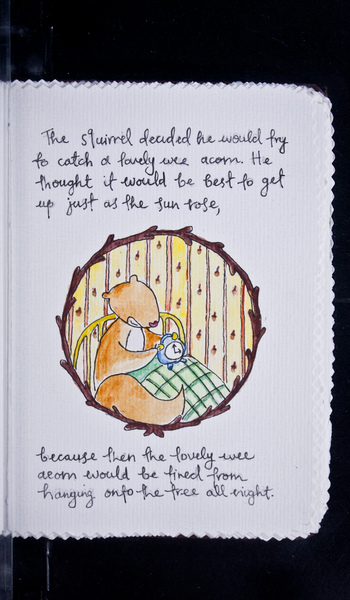 The squirrel decided he would try
to catch a lovely wee acorn. He
thought it would be best to get
up just as the sun rose,
because then the lovely wee
acorn would be tired from
hanging onto the tree all night.